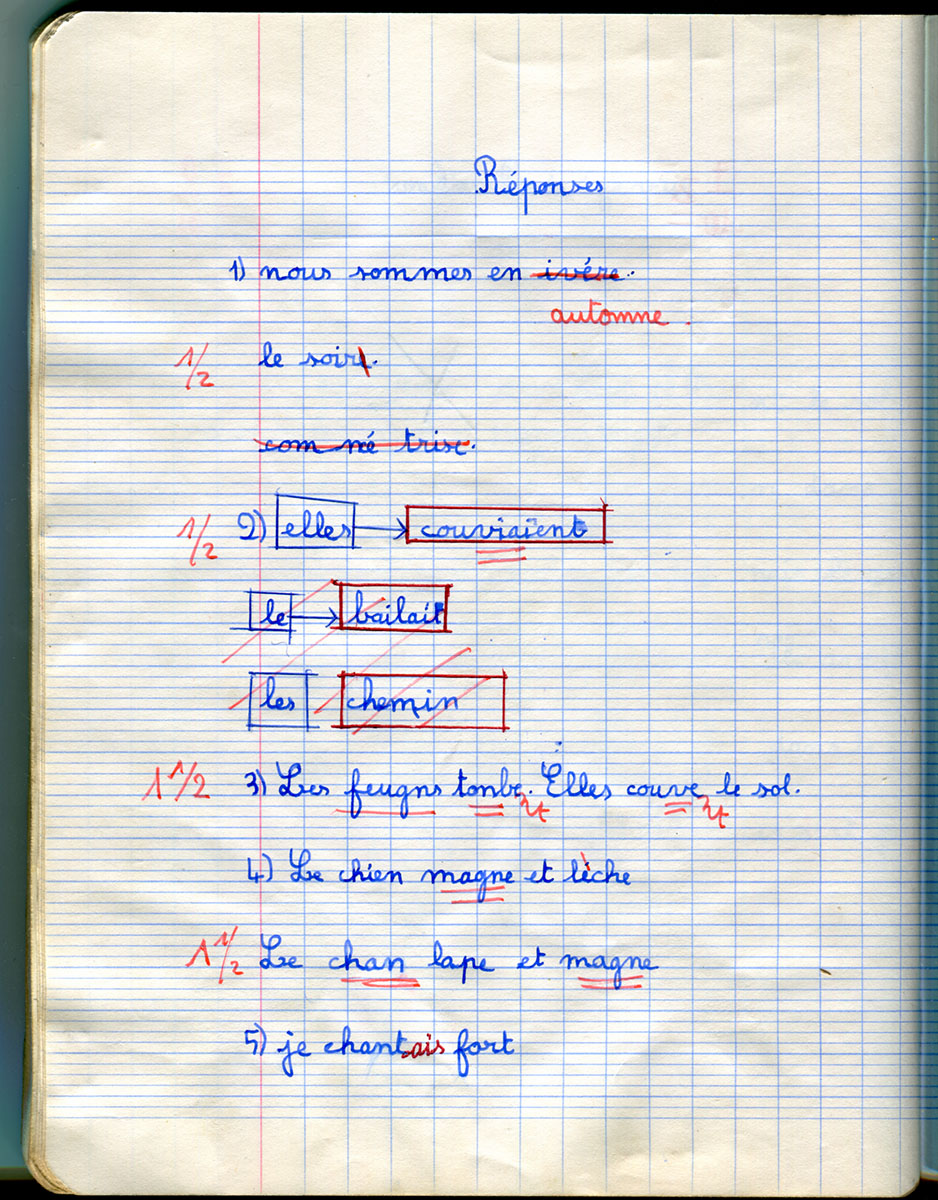 Réponses
1) nous sommes en ivére.
automne.
1/2 le soirt.
com né trise.
1/2 2) elles → couviaient
le → bailait
les chemin
1 1/2 3) Les feugns tonbe nt. Elles couve nt le sol.
4) Le chien magne et lèche
1 1/2 Le chan lape et magne
5) je chantais fort